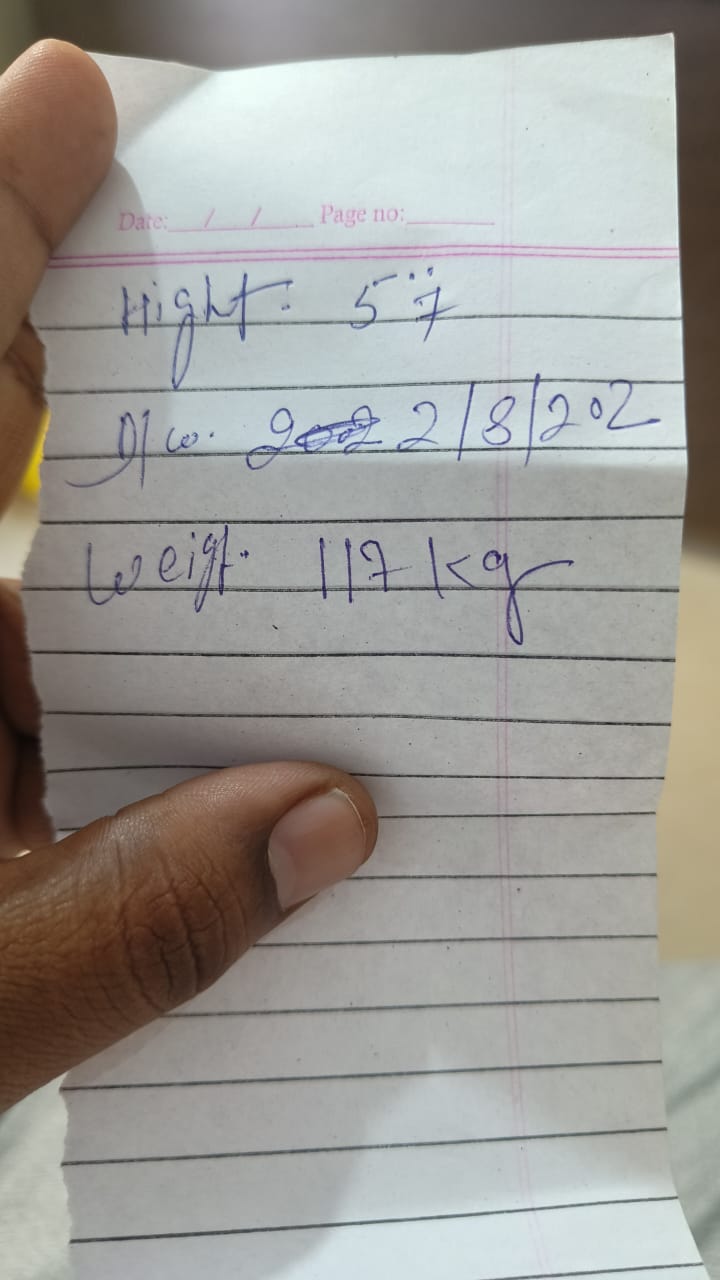 Date: / / Page no:
Hight: 5¨7
D/w. 2/8/202
Weigt. 117 kg